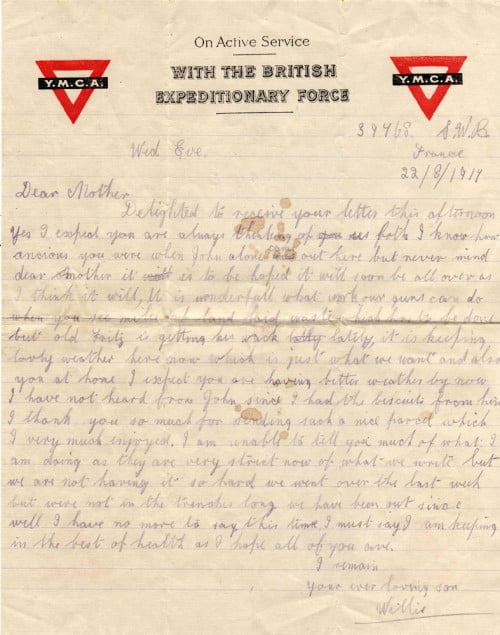 On Active Service
WITH THE BRITISH
EXPEDITIONARY FORCE
Y.M.C.A.
Y.M.C.A.
39468 S.W.B.
Wed Eve.
France
22/8/1917
Dear Mother
Delighted to receive your letter this afternoon
Yes I expect you are always thinking of you us both I know how
ancious you were when John alone was out here but never mind
dear mother it is to be hoped it will soon be all over as
I think it will, It is wonderfull what work our guns can do
when you see miles of land laid waste has to be done
but old Fritz is getting his wack lately, it is keeping
lovly weather here now which is just what we want and also
you at home I expect you are having better weather by now
I have not heard from John since I had the biscuits from him
I thank you so much for sending such a nice parcel which
I very much enjoyed. I am unable to tell you much of what I
am doing as they are very strict now of what we write but
we are not having it so hard we went over the last week
but were not in the trenches long we have been out since
well I have no more to say this time I must say I am keeping
in the best of health as I hope all of you are.
I remain
your ever loving son
Willie